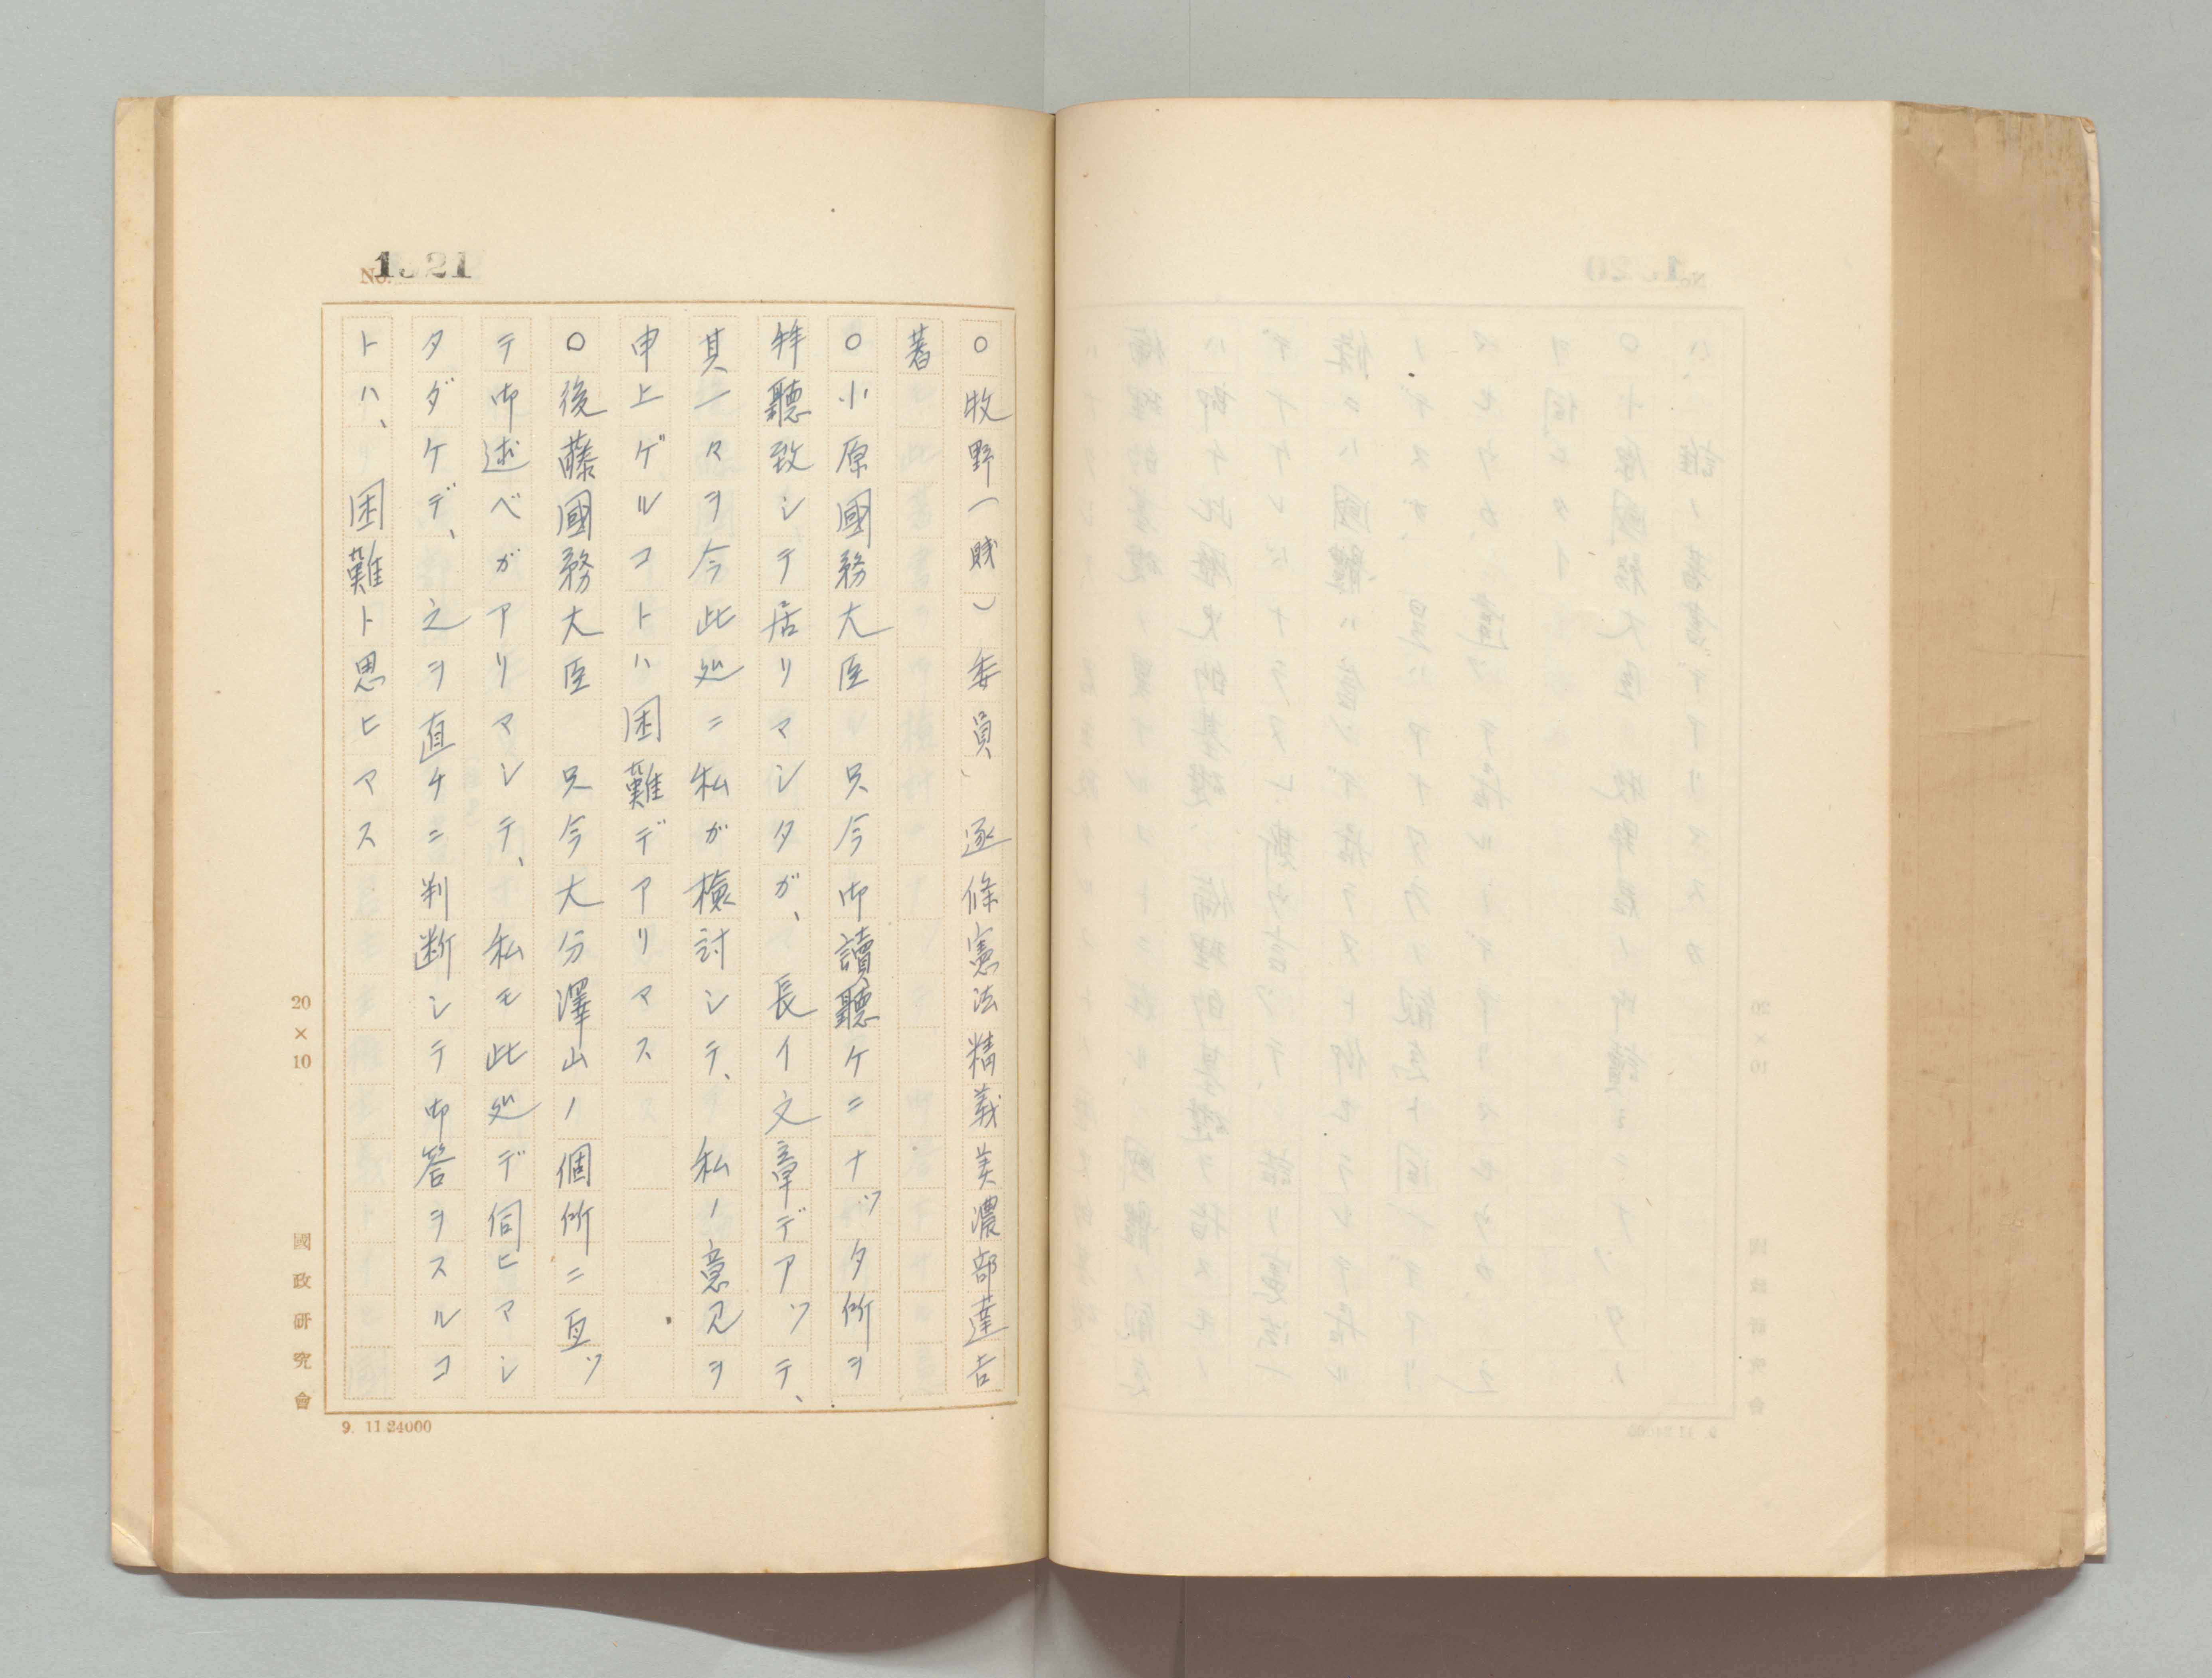 No. 1521
○牧野(賎)委員、　逐條憲法精義美濃部達吉
著
○小原國務大臣　只今御讀聽ケニナッタ所ヲ
拜聽致シテ居リマシタガ、長イ文章デアッテ、
其一々ヲ今此処ニ私ガ檢討シテ、私ノ意見ヲ
申上ゲルコトハ困難デアリマス
○後藤國務大臣　只今大分澤山ノ個所ニ亙ッ
テ御述ベガアリマシテ、私モ此処デ伺ヒマシ
タダケデ、之ヲ直チニ判断シテ御答ヲスルコ
トハ、困難ト思ヒマス
20×10
國政研究會
9. 11 24000